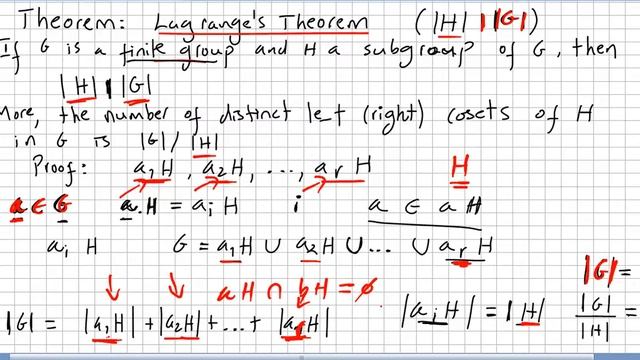 Theorem: Lagrange's Theorem (|H| | |G|)
If G is a finite group and H a subgroup of G, then
|H| | |G|
More, the number of distinct left (right) cosets of H
in G is |G| / |H|
Proof: a₁H, a₂H, ..., aᵣH H
a ∈ G a.H = aᵢH i a ∈ aH
aᵢ H G = a₁H ∪ a₂H ∪ ... ∪ aᵣH
aH ∩ bH = ∅ |G| =
|G| = |a₁H| + |a₂H| + ... + |aᵣH| |aᵢH| = |H| |G|/|H| =